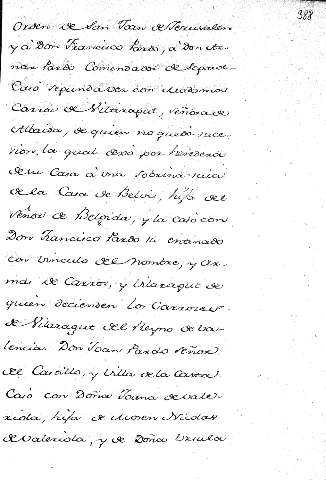 388
Orden de San Joan de Jerusalen
y á Don Francisco Pardo, á Don Ar-
nau Pardo Comendador de
Casó segunda vez con
Carroz de Vilaragut, Señora de
Albaida, de quien no quedó suce-
sion, la qual dexó por heredera
de su Casa á una sobrina suia
de la Casa de Belvis, hija del
Señor de Belgida, y la casó con
Don Francisco Pardo su entenado
con vinculo del Nombre, y Ar-
mas de Carroz, y Vilaragut de
quien decienden los Carrozes
de Vilaragut del Reyno de Va-
lencia. Don Joan Pardo Señor
del Castillo, y Villa de la Casta
Casó con Doña Joana de Vale-
riola, hija de Mosen Nicolas
de Valeriola, y de Doña Ursula